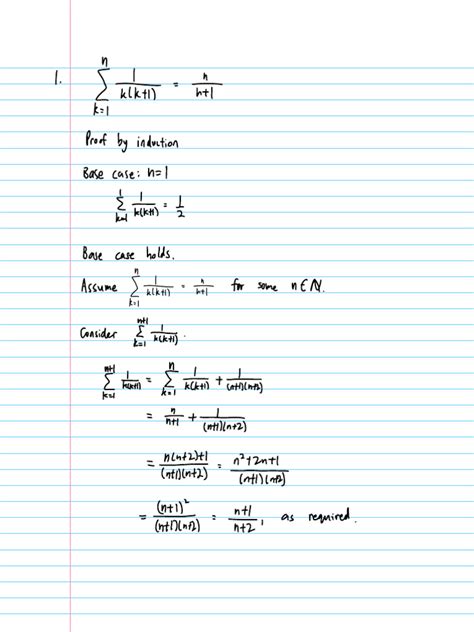 1. \sum_{k=1}^{n} \frac{1}{k(k+1)} = \frac{n}{n+1}
Proof by induction
Base case: n=1
\sum_{k=1}^{1} \frac{1}{k(k+1)} = \frac{1}{2}
Base case holds.
Assume \sum_{k=1}^{n} \frac{1}{k(k+1)} = \frac{n}{n+1} for some n∈ℕ.
Consider \sum_{k=1}^{n+1} \frac{1}{k(k+1)}.
\sum_{k=1}^{n+1} \frac{1}{k(k+1)} = \sum_{k=1}^{n} \frac{1}{k(k+1)} + \frac{1}{(n+1)(n+2)}
= \frac{n}{n+1} + \frac{1}{(n+1)(n+2)}
= \frac{n(n+2)+1}{(n+1)(n+2)} = \frac{n^2+2n+1}{(n+1)(n+2)}
= \frac{(n+1)^2}{(n+1)(n+2)} = \frac{n+1}{n+2}, as required.